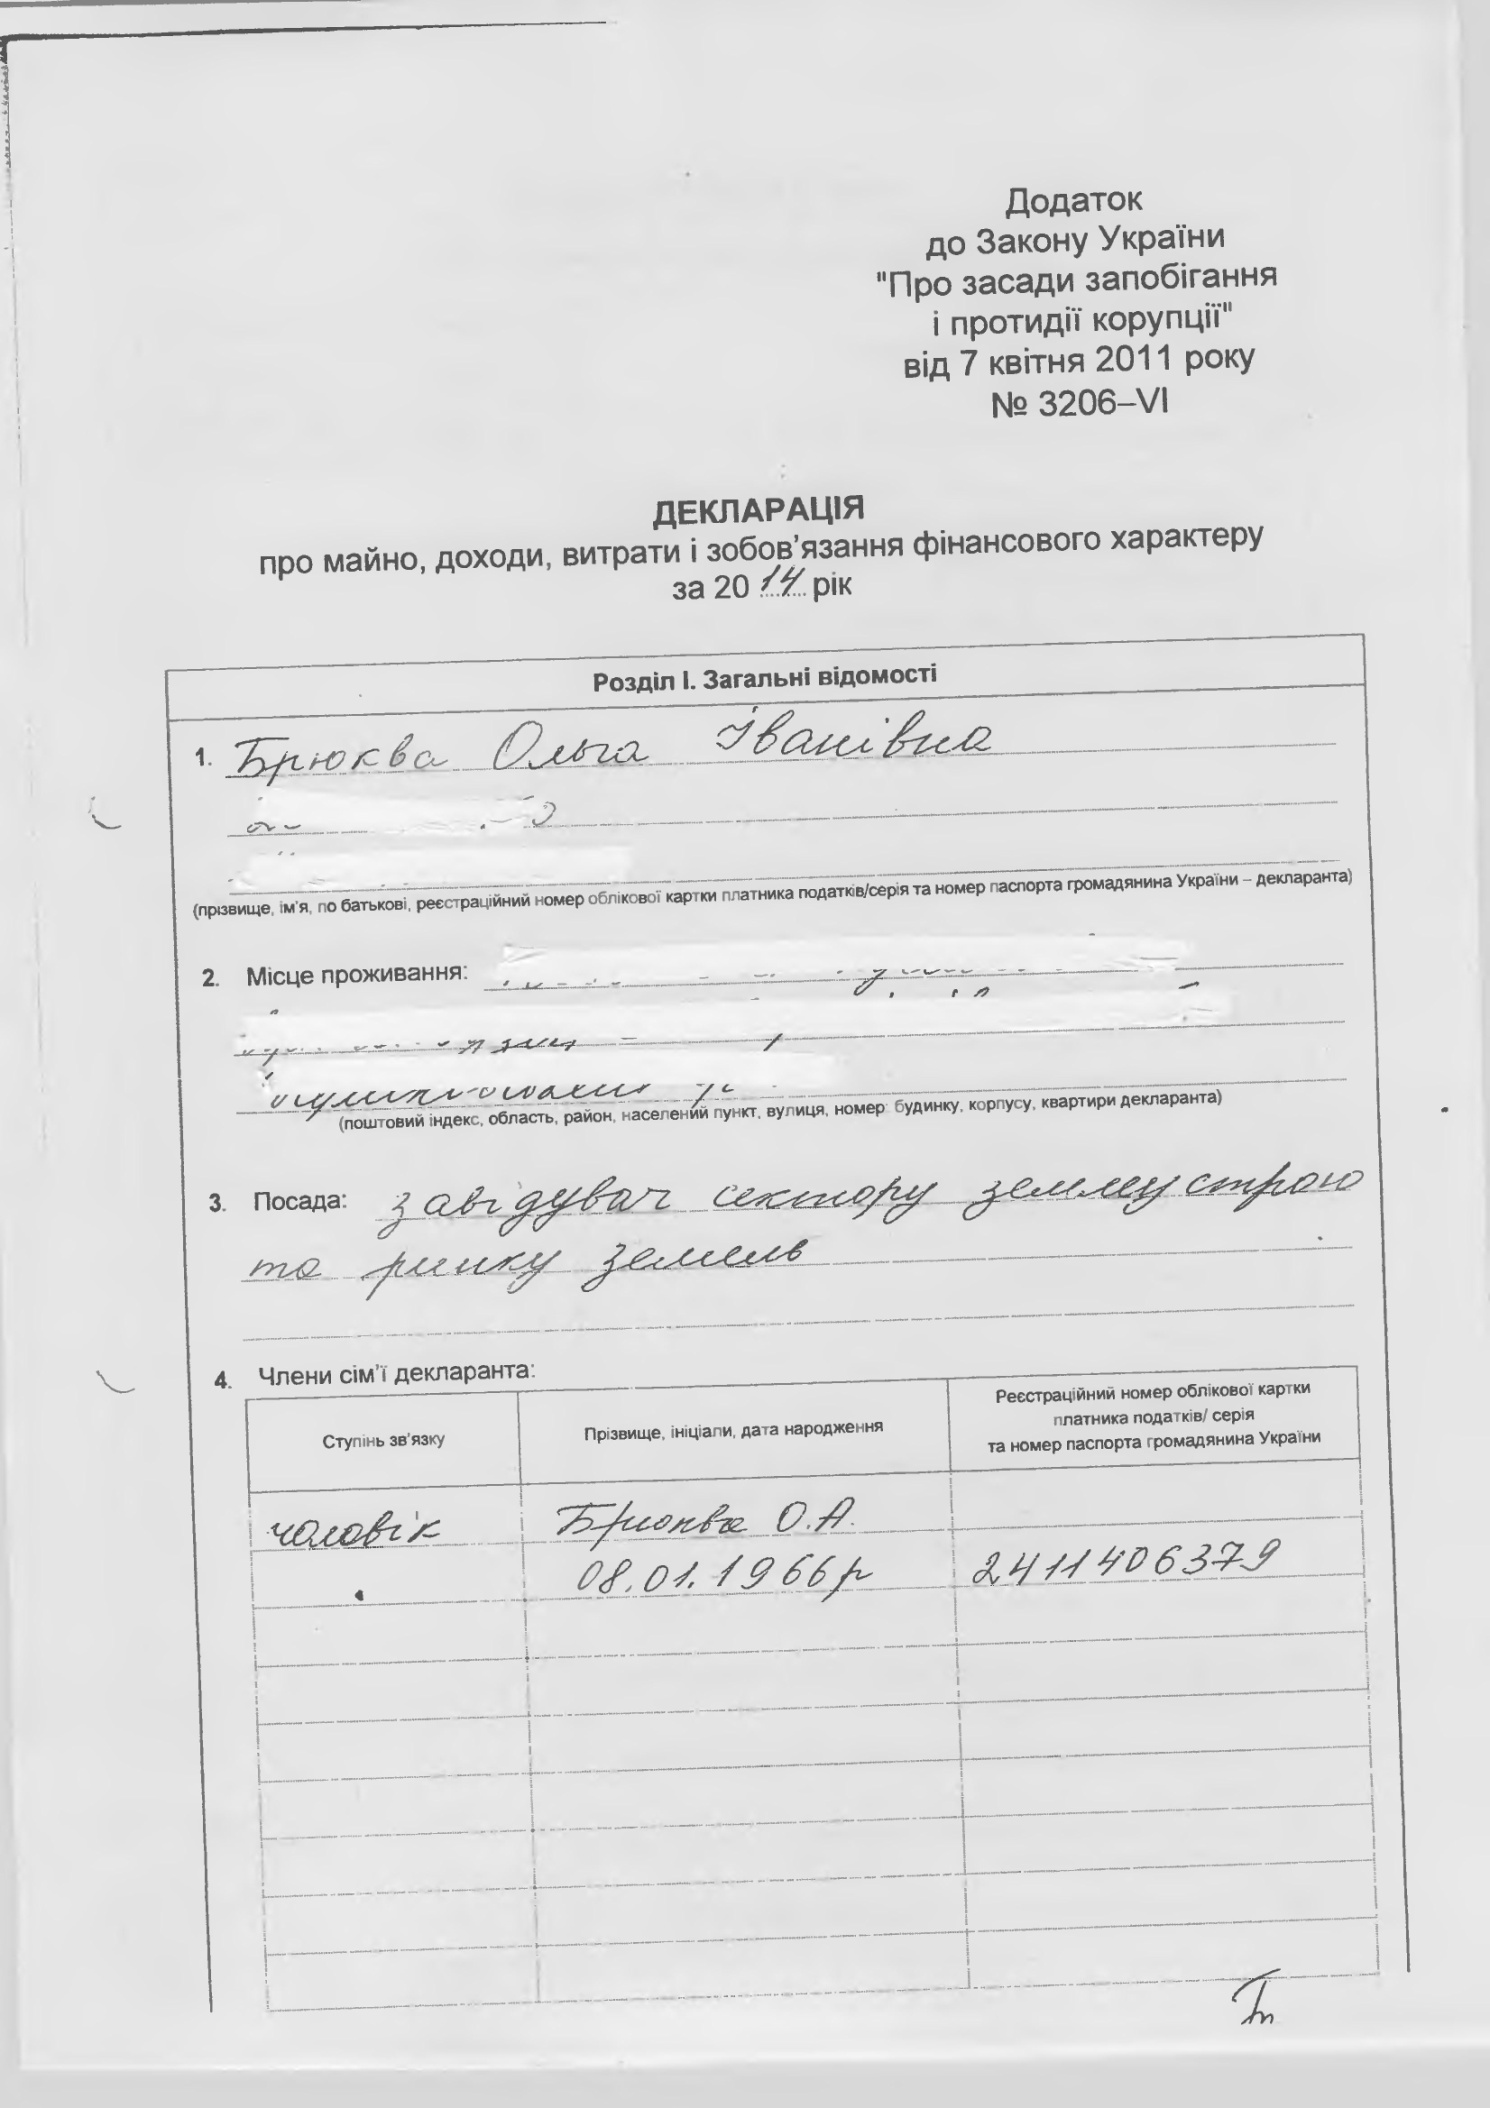 Додаток
до Закону України
"Про засади запобігання
і протидії корупції"
від 7 квітня 2011 року
№ 3206–VI
ДЕКЛАРАЦІЯ
про майно, доходи, витрати і зобов'язання фінансового характеру
за 2014 рік
Розділ I. Загальні відомості
1. Брюква Ольга Іванівна
(прізвище, ім'я, по батькові, реєстраційний номер облікової картки платника податків/серія та номер паспорта громадянина України – декларанта)
2. Місце проживання:
(поштовий індекс, область, район, населений пункт, вулиця, номер будинку, корпусу, квартири декларанта)
3. Посада: завідувач сектору землеустрою
та ринку земель
4. Члени сім'ї декларанта:
Ступінь зв'язку Прізвище, ініціали, дата народження Реєстраційний номер облікової картки
платника податків/ серія
та номер паспорта громадянина України
чоловік Брюква О.А.
08.01.1966р 2411406379